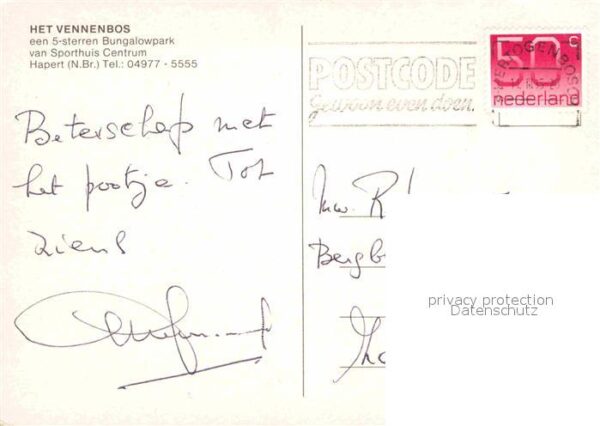 HET VENNENBOS
een 5-sterren Bungalowpark
van Sporthuis Centrum
Hapert (N.Br.) Tel.: 04977 - 5555
POSTCODE
Gewoon even doen.
50 c
nederland
HERTOGENBOSCH
Beterschap met
het pootje. Tot
ziens
Mw. R
Bergb
privacy protection
Datenschutz